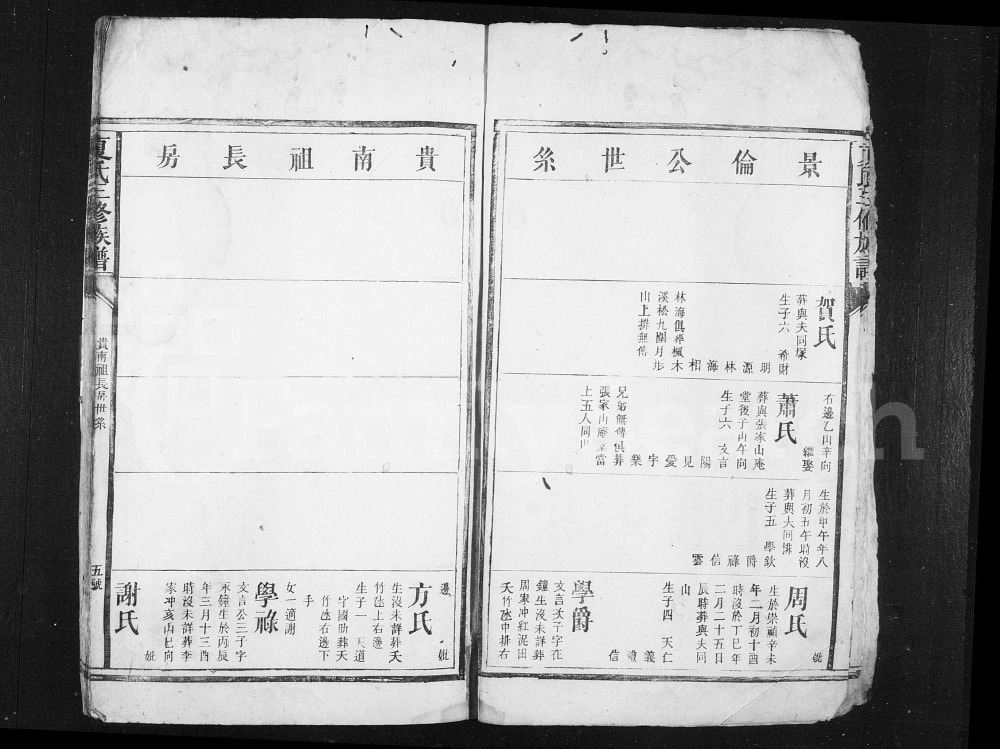 景倫公世系
賀氏
葬與夫同塚
生子六 希財
明源林海相
林海俱葬楓木
溪松九關月形
山上排無傳
右邊乙山辛向
繼娶
蕭氏
葬與張家山庵
堂後子山午向
生子六 文言
陽見愛字業
兄弟無傳俱葬
張家山庵堂當
上五人同山
生於甲午年八
月初五午時沒
葬與夫同排
生子五 學欽
爵祿信雲
妣
周氏
生於崇禎辛未
年二月初十酉
時沒於丁巳年
二月二十五日
辰時葬與夫同
山
生子四 天仁
義禮信
學爵
文言次子字在
鐘生沒未詳葬
周家冲紅泥田
天竹冲排右
貴南祖長房
邊
妣
方氏
生沒未詳葬天
竹上右邊
生子一 天道
字國助葬天
竹右邊下
手
女一適謝
學祿
文言公三子字
永鐘生於丙辰
年三月十三酉
時沒未詳葬李
家冲亥山巳向
妣
謝氏
夏氏三修族譜
貴南祖長房世系
五號